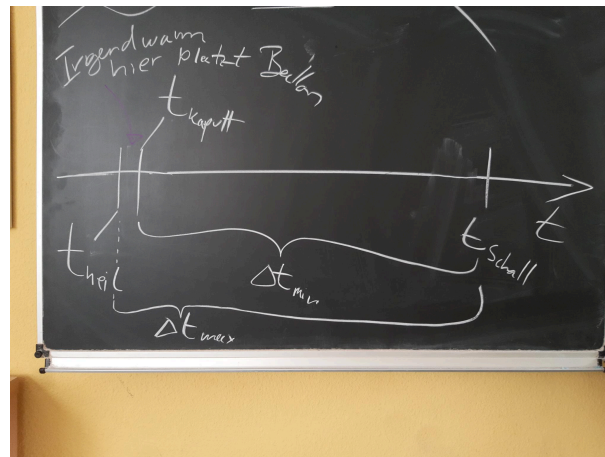 Irgendwann
hier platzt Ballon
t kaputt
t heil
t Schall
t
Δt min
Δt max